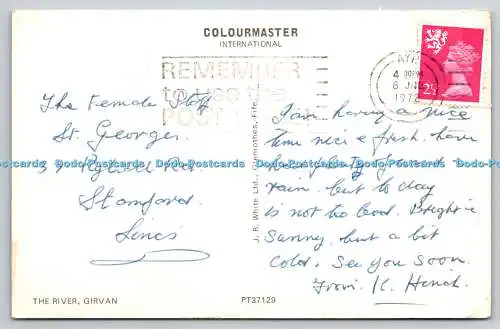 COLOURMASTER
INTERNATIONAL
REMEMBER
to use the
POST
AYR
6 JNE
1972
2½
The Female Staff
St Georges
Stamford
Lincs
Dodo-Postcards Dodo-Postcards Dodo-Postcards Dodo-Postcards Dodo-Postcards Dodo-Postcards
J. B. White Ltd., Fife.
Am having a nice
time nice & fresh. have
had plenty of
rain. but to day
is not too bad. Bright &
Sunny. but a bit
cold. See you soon.
From. K.
THE RIVER, GIRVAN
PT37129